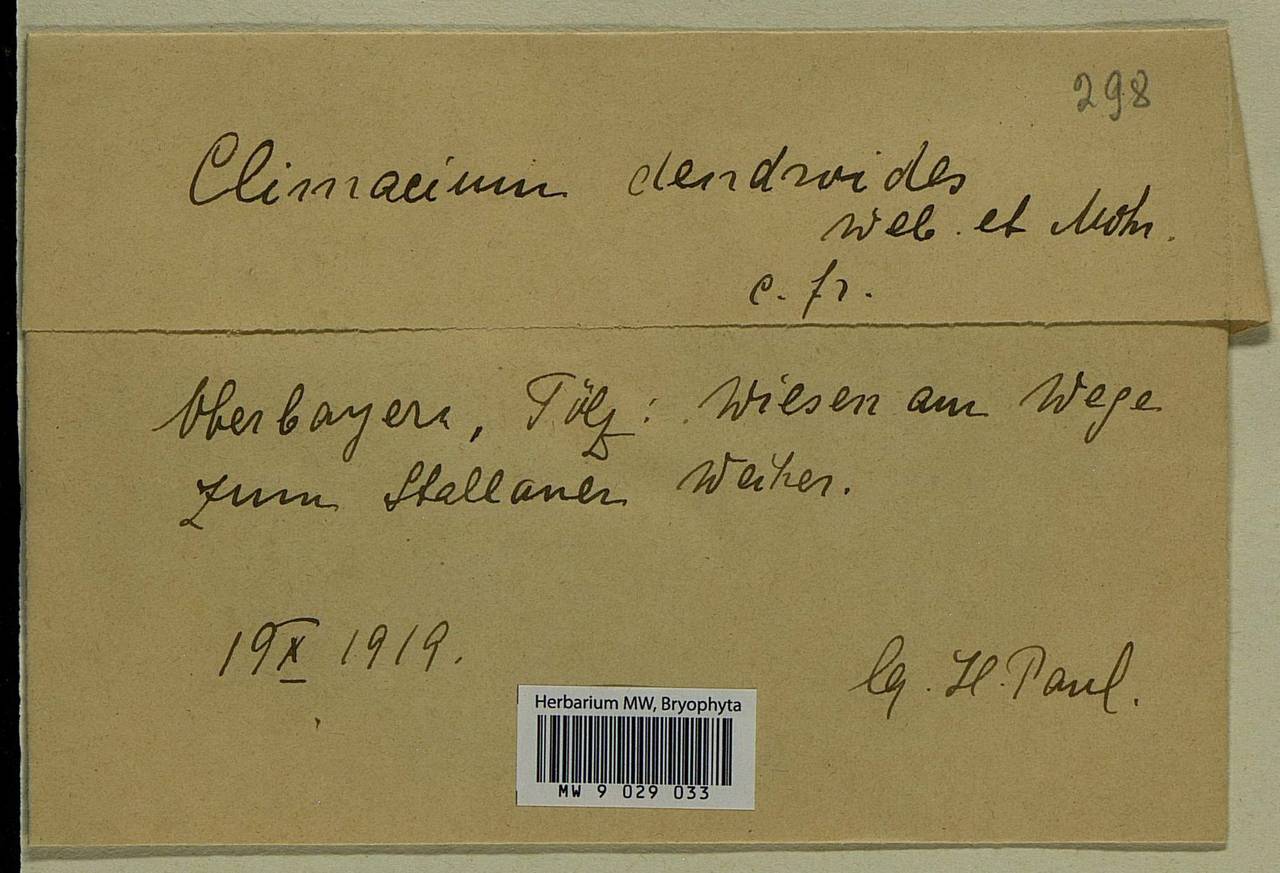 298
Climacium dendroides
Web. et Mohr.
c. fr.
Oberbayern, Tölz: Wiesen am Wege
zum Stallauer Weiher.
19 X 1919.
lg. H. Paul.
Herbarium MW, Bryophyta
MW 9 029 033